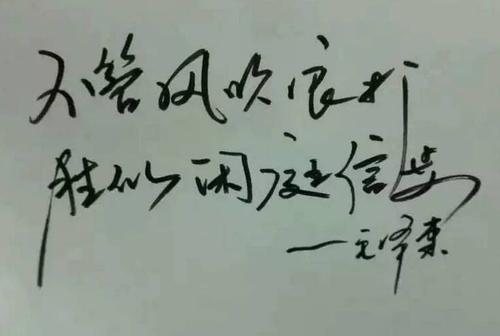 不管风吹浪打
胜似闲庭信步
——毛泽东